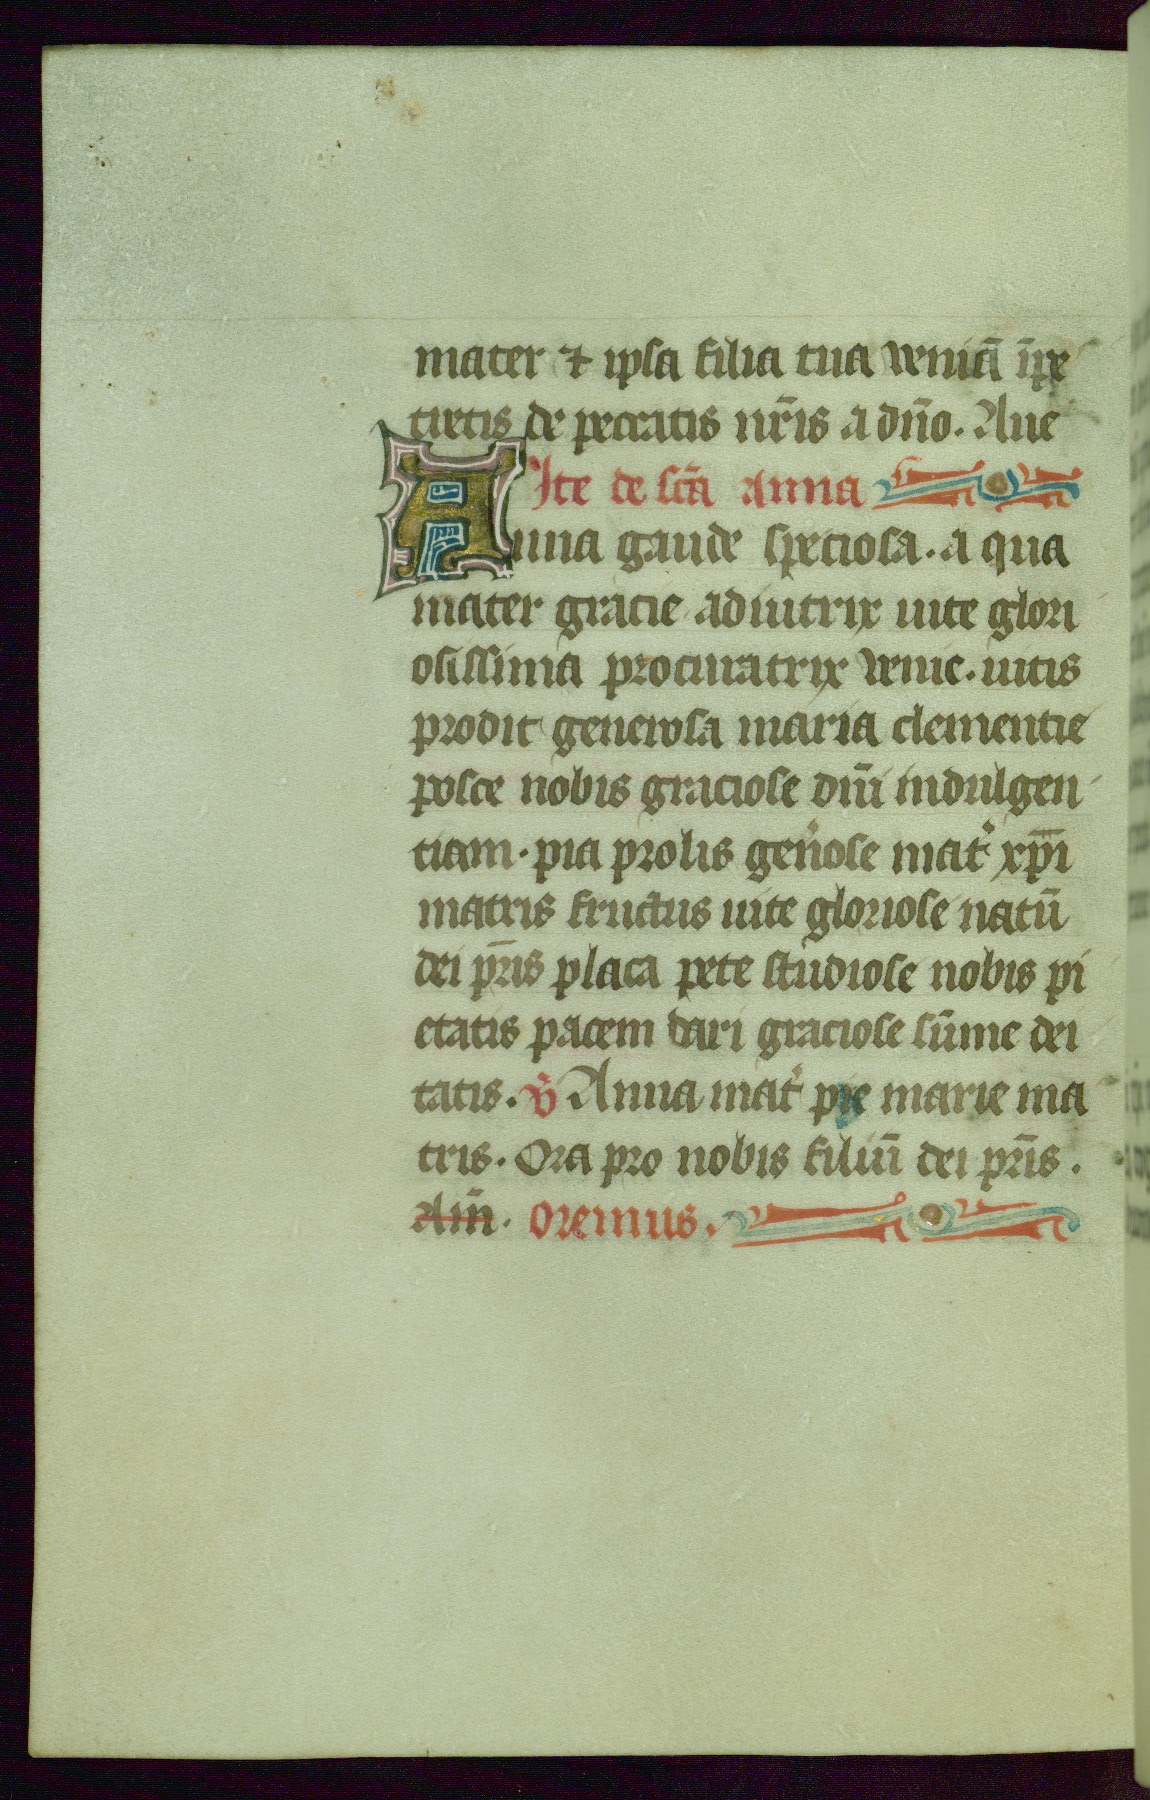 mater ⁊ ipsa filia tua veniā īpe
tretis de peccatis nr̄is a dn̄o. Aue
Ite de sc̄a anna
Anna gaude speciosa. a qua
mater gracie adiutrix uite glori
osissima procuratrix venie. uitis
prodit generosa maria clementie
posce nobis graciose dn̄i indulgen
tiam. pia prolis gen̉ose mat̉ xp̄i
matris fructus uite gloriose natū
dei pr̄is placa pete studiose nobis pi
etatis pacem dari graciose sūme dei
tatis. v̉ Anna mat̉ pie marie ma
tris. Ora pro nobis filiū dei pr̄is.
Am̄. Oremus.